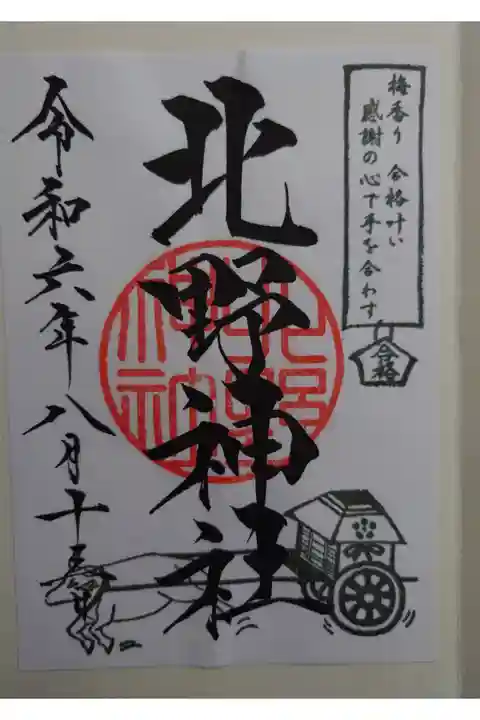 梅香り 合格叶い
感謝の心で手を合わす
合格
北野神社
北野
神社
令和六年八月十五日